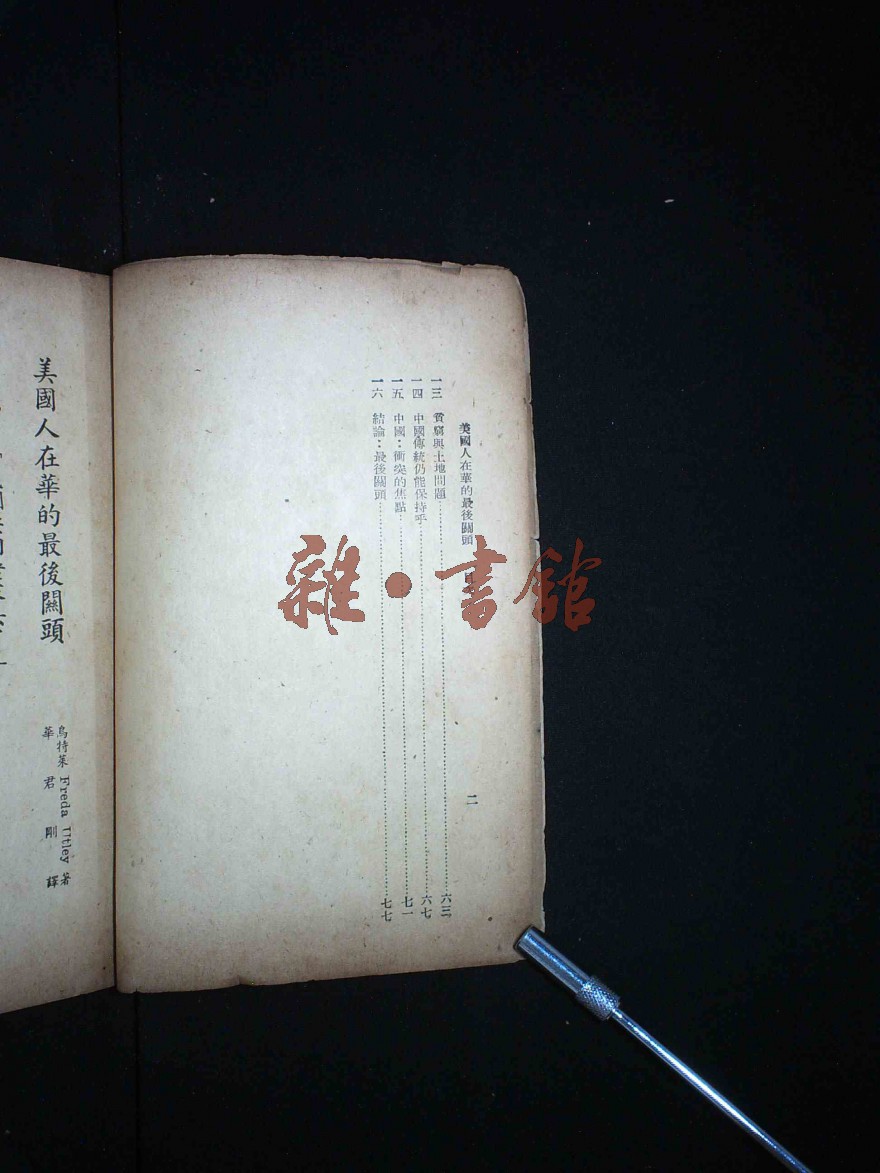 美國人在華的最後關頭 目
二
一三 貧窮與土地問題……六三
一四 中國傳統仍能保持乎……六七
一五 中國：衝突的焦點……七一
一六 結論：最後關頭……七七
雜·書館
美國人在華的最後關頭
烏特萊 Freda Utley 著
華君剛譯